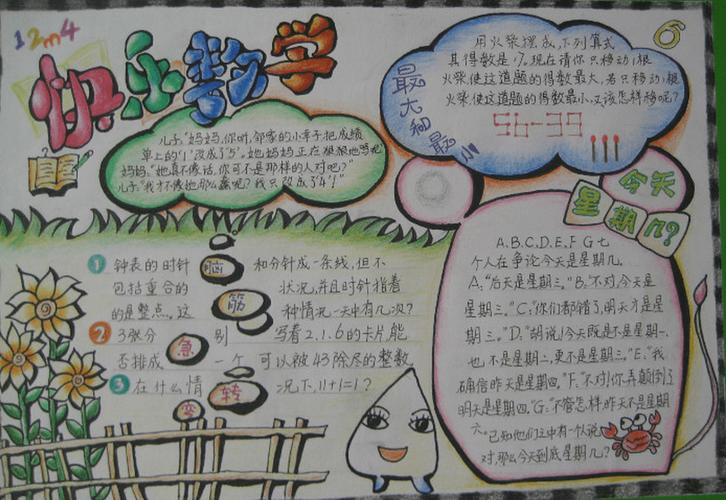 12m4
快乐数学
儿子:“妈妈,你听,邻家的小幸子把成绩
单上的“1”改成了“5”,她妈妈正在狠狠地骂她
妈妈:“她真不像话,你可不是那样的人对吧?”
儿子:“我才不像她那么蠢呢?我只改成了“4”!”
最大和最小
用火柴摆成,下列算式
其得数是17,现在请你只移动1根
火柴,使这道题的得数最大,若只移动1根
火柴,使这道题的得数最小,又该怎样移呢?
56-39
今天
星期几?
A、B、C、D、E、F G 七
个人在争论今天是星期几。
A:“后天是星期三。”B:“不对,今天是
星期三。”C:“你们都错了,明天才是星
期三。”D:“胡说!今天既是不是星期一、
也不是星期二,更不是星期三。”E:“我
确信昨天是星期四。”F:“不对!你弄颠倒了
明天是星期四。”G:“不管怎样,昨天不是星期
六。”已知他们之中有一个人说
对,那么今天到底星期几?
脑筋急转弯
1 钟表的时针和分针成一条线,但不
包括重合的状况,并且时针指着
的是整点。这种情况一天中有几次?
2 3张分别写着2、1、6的卡片能
否排成一个可以被43除尽的整数
3 在什么情况下,11+1=1?